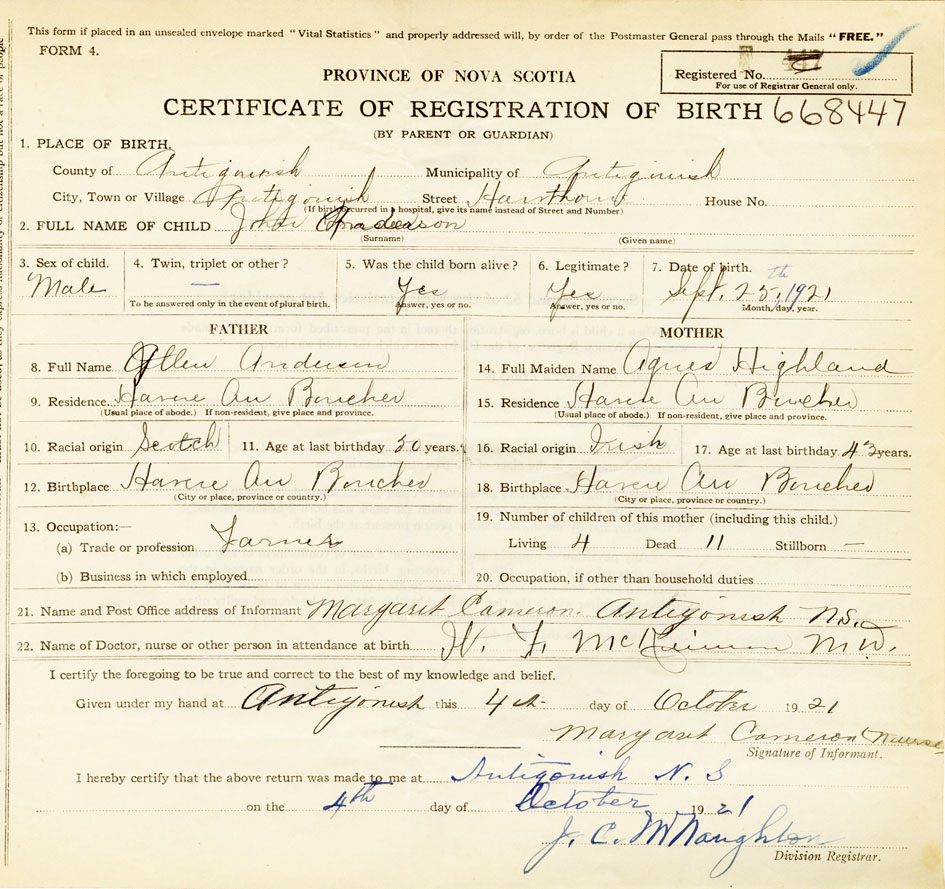 This form if placed in an unsealed envelope marked "Vital Statistics" and properly addressed will, by order of the Postmaster General pass through the Mails "FREE."
FORM 4.
PROVINCE OF NOVA SCOTIA
Registered No.
For use of Registrar General only.
CERTIFICATE OF REGISTRATION OF BIRTH 668447
(BY PARENT OR GUARDIAN)
1. PLACE OF BIRTH.
County of Antigonish Municipality of Antigonish
City, Town or Village Antigonish Street Hawthorn House No.
(If birth occurred in a hospital, give its name instead of Street and Number)
2. FULL NAME OF CHILD John Anderson
(Surname) (Given name)
3. Sex of child. 4. Twin, triplet or other? 5. Was the child born alive? 6. Legitimate? 7. Date of birth.
Male — Yes Yes Sept. 25th, 1921
To be answered only in the event of plural birth. Answer, yes or no. Answer, yes or no. Month, day, year.
FATHER MOTHER
8. Full Name Allen Anderson 14. Full Maiden Name Agnes Highland
9. Residence Havre Au Boucher 15. Residence Havre Au Boucher
(Usual place of abode.) If non-resident, give place and province. (Usual place of abode.) If non-resident, give place and province.
10. Racial origin Scotch 11. Age at last birthday 50 years. 16. Racial origin Irish 17. Age at last birthday 43 years.
12. Birthplace Havre Au Boucher 18. Birthplace Havre Au Boucher
(City or place, province or country.) (City or place, province or country.)
13. Occupation:— 19. Number of children of this mother (including this child.)
(a) Trade or profession Farmer Living 4 Dead 11 Stillborn —
(b) Business in which employed 20. Occupation, if other than household duties
21. Name and Post Office address of Informant Margaret Cameron. Antigonish N.S.
22. Name of Doctor, nurse or other person in attendance at birth W. F. McKinnon M.D.
I certify the foregoing to be true and correct to the best of my knowledge and belief.
Given under my hand at Antigonish this 4th day of October 1921
Margaret Cameron (Nurse
Signature of Informant.
I hereby certify that the above return was made to me at Antigonish N. S
on the 4th day of October 1921
J. C. McNaughton
Division Registrar.